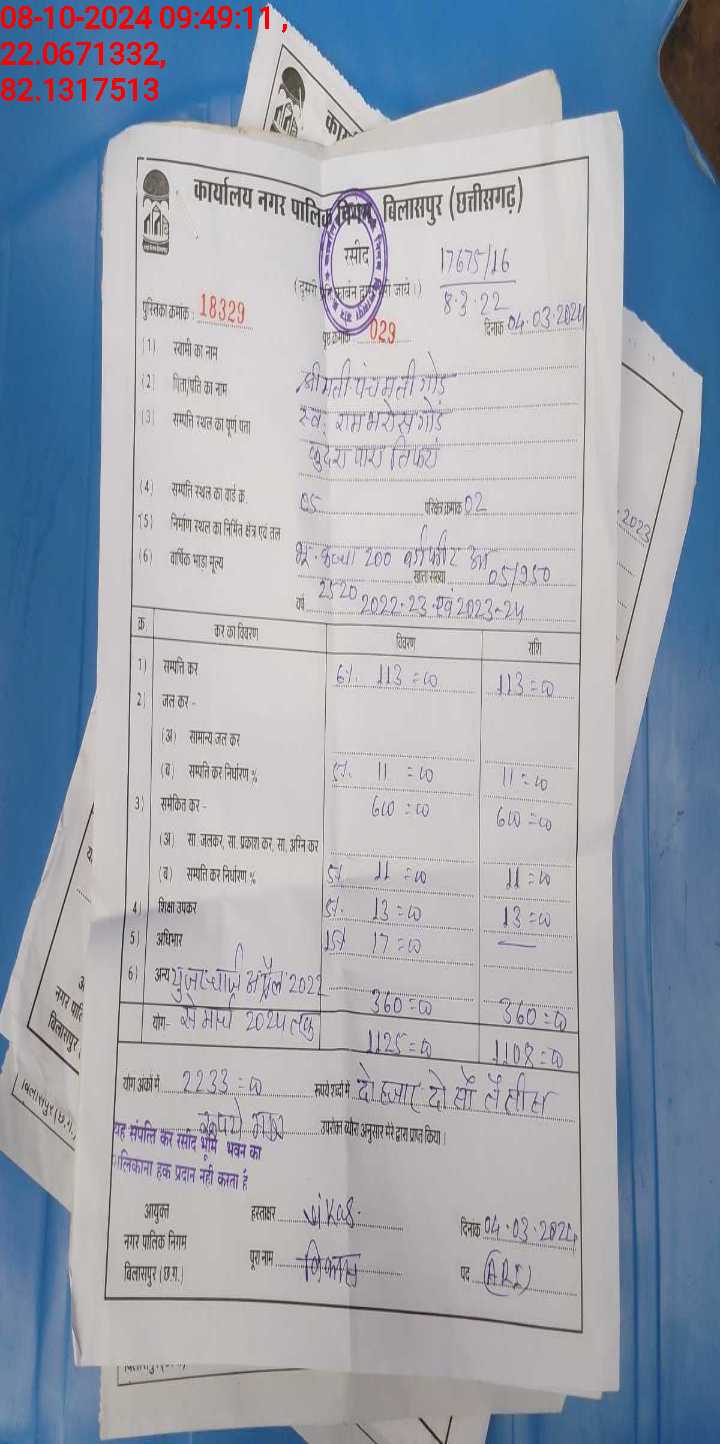 08-10-2024 09:49:11 ,
22.0671332,
82.1317513
कार्यालय नगर पालिक निगम, बिलासपुर (छत्तीसगढ़)
रसीद
17675/16
8.3.22
पुस्तिका क्रमांक : 18329
पृष्ठ क्रमांक 029
दिनांक 04.03.2024
(1) स्वामी का नाम श्रीमती पंचमती गोंड
(2) पिता/पति का नाम स्व. रामभरोस गोंड
(3) सम्पत्ति स्थल का पूर्ण पता
(4) सम्पत्ति स्थल का वार्ड क्र. 05 परिक्षेत्र क्रमांक 02
(5) निर्माण स्थल का निर्मित क्षेत्र एवं तल भू. कच्चा 200
(6) वार्षिक भाड़ा मूल्य 2520 खाता संख्या 05/950
वर्ष 2022-23 एवं 2023-24
क्र कर का विवरण विवरण राशि
1) सम्पत्ति कर 6%. 113=00 113=00
2) जल कर -
(अ) सामान्य जल कर
(ब) सम्पत्ति कर निर्धारण % 11=00 11=00
3) समेकित कर - 600=00 600=00
(अ) सा. जलकर, सा. प्रकाश कर, सा. अग्नि कर
(ब) सम्पत्ति कर निर्धारण % 11=00 11=00
4) शिक्षा उपकर 13=00 13=00
5) अधिभार 17=00 —
6) अन्य यूजर चार्ज अप्रैल 2022 360=00 360=00
योग- से मार्च 2024 तक 1125=00 1108=00
योग अंकों में 2233=00 रूपये शब्दों में दो हजार दो सौ तैंतीस
रूपये मात्र उपरोक्त ब्यौरा अनुसार मेरे द्वारा प्राप्त किया।
यह संपत्ति कर रसीद भूमि भवन का
मालिकाना हक प्रदान नहीं करता है
आयुक्त
नगर पालिक निगम
बिलासपुर (छ.ग.)
हस्ताक्षर Vikas.
दिनांक 04.03.2024
पूरा नाम विकास
पद (ARI)
2023
नगर पालि
बिलासपुर
बिलासपुर (छ.ग.)